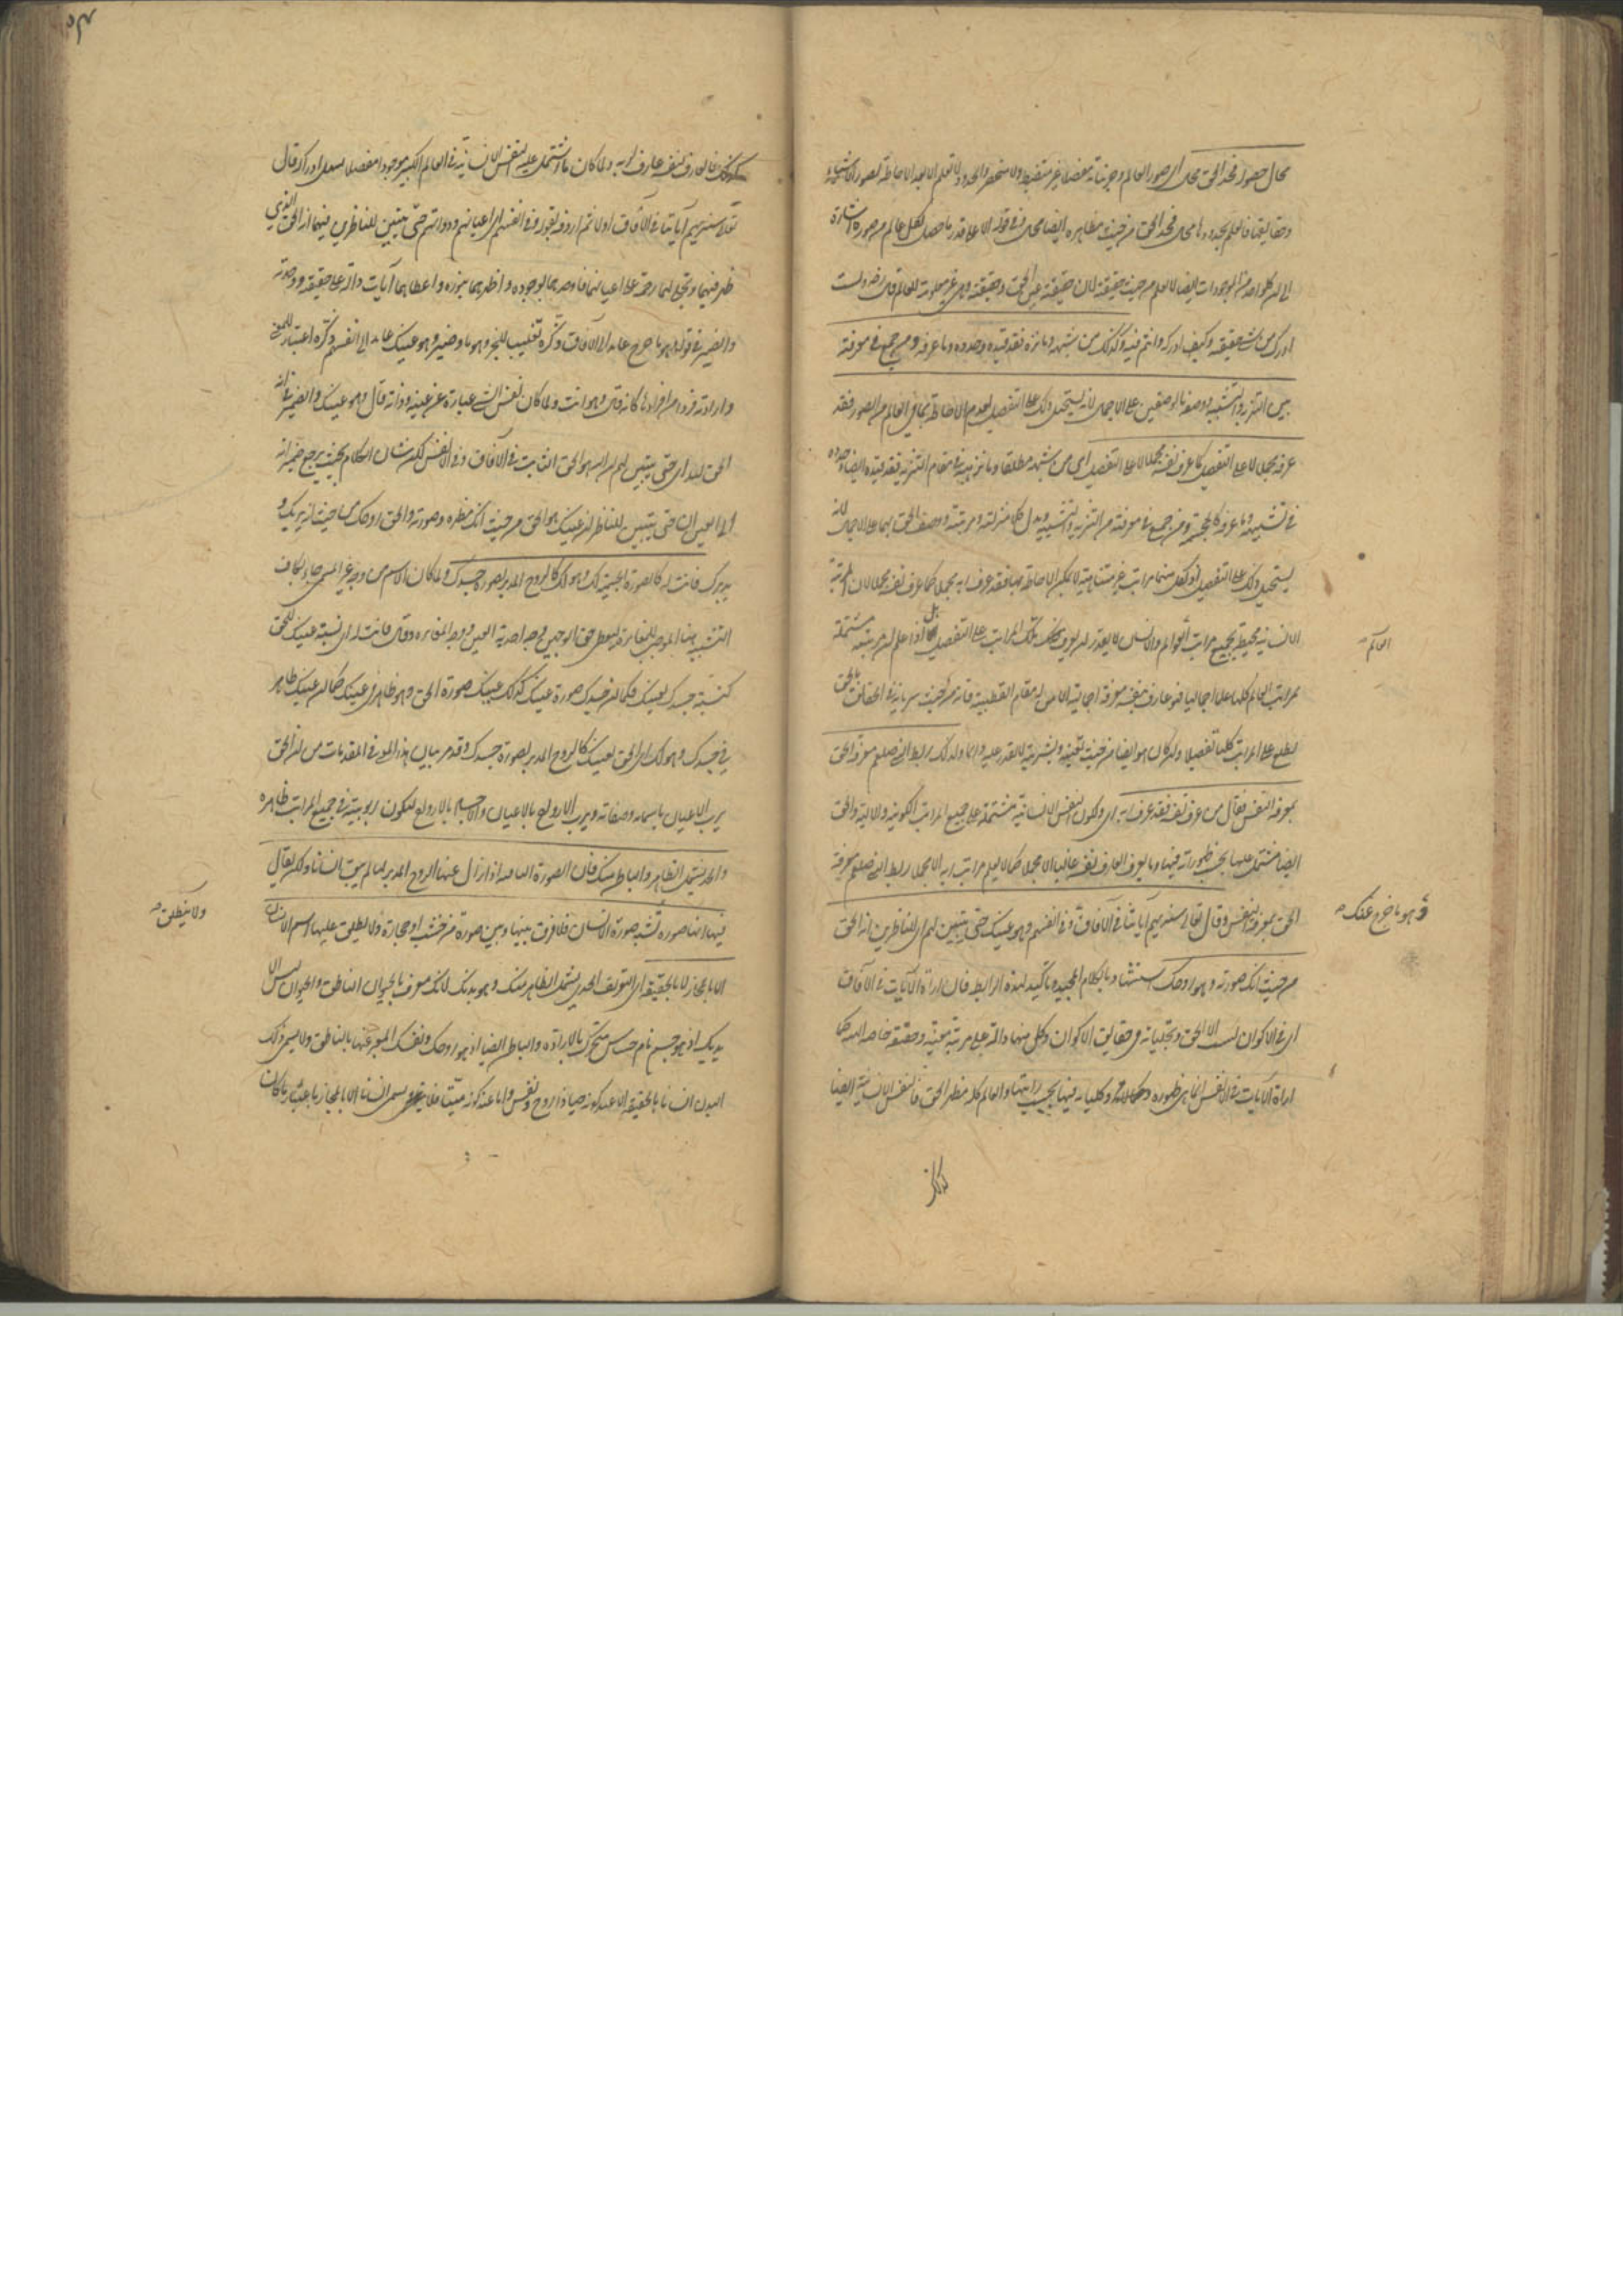 محال حصوله فحد الحق محال اى صور العالم وجزئياته مفصلا غير منضبط ولا منحصر والحدود لا تعلم الا بعد الاحاطة بصور الاشياء
وحقايقها فالعلم بحدودها محال فحد الحق من حيث مظاهره ايضا محال في قوله الا على قدر ما حصل لكل عالم من صوره اشارة
الى ان كلواحد من الموجودات ايضا لا يعلم من حيث حقيقته لان حقيقته عين الحق وحقيقته وهى غير معلومة للعالم قال رضه ولست
ادرك من شىء حقيقته وكيف ادركه وانتم فيه وكذلك من شبهه وما نزهه فقد قيده وحدده وما عرفه ومن جمع في معرفته
بين التنزيه والتشبيه ووصفه بالوصفين على الاجمال لانه يستحيل ذلك على التفصيل لعدم الاحاطة بما فى العالم من الصور فقد
عرفه مجملا لا على التفصيل كما عرف نفسه مجملا لا على التفصيل اى من شبهه مطلقا وما نزهه في مقام التنزيه فقد قيده ايضا وحدده
في تشبيهه وما عرفه كالمجسمة ومن جمع في معرفته من التنزيه والتشبيه ونزل كلا منزلته ومرتبته ووصف الحق بهما على الاجمال لانه
يستحيل ذلك على التفصيل اذ لكل منهما مراتب غير متناهية لا يمكن الاحاطة بها فقد عرف ربه مجملا كما عرف نفسه مجملا لان المرتبة
الانسانية محيطة بجميع مراتب العالم والانسان لا يقدر ان يعرف تلك المراتب على التفصيل بل اذا علم ان مرتبته مشتملة
العالم
بمراتب العالم كلها علما اجماليا فهو عارف بنفسه معرفة اجمالية الا من له مقام القطبية فانه من حيث سريانه في الحقايق بالحق
يطلع على المراتب كلها تفصيلا وان كان هو ايضا من حيث تعينه وبشريته لا يقدر عليه دائما ولذلك ربط النبي صلعم معرفة الحق
بمعرفة النفس فقال من عرف نفسه فقد عرف ربه اى ولكون النفس الانسانية مشتملة على جميع المراتب الكونية والالهية والحق
ايضا مشتمل عليها بحسب ظهوراته فيها وما يعرف العارف نفسه غالبا الا مجملا كما لا يعلم مراتب ربه الا مجملا ربط النبي صلعم معرفة
الحق بمعرفة النفس وقال تعالى سنريهم آياتنا في الآفاق وفي انفسهم وهو عينك حتى يتبين لهم اى للناظرين انه الحق
وهو ما خرج عنك صح
من حيث انك صورته وهو روحك استشهاد بالكلام المجيد وتاكيد لهذه الرابطة فان اراة الآيات في الآفاق
اى في الاكوان ليست الا الحق وتجلياته في حقايق الاكوان وكل منها دالة على مرتبة معينة وحقيقة خاصة الهية كما
اراة الآيات في الانفس انما هى ظهوره وكمالاته وتجلياته فيها بحسب مراتبها والعالم كله مظهر الحق فالنفس الانسانية ايضا
كذلك
كذلك فالعارف لنفسه عارف لربه ولما كان ما اشتمل عليه النفس الانسانية في العالم الكبير موجودا مفصلا يسهل ادراكه قال
تعالى سنريهم آياتنا في الآفاق اولا ثم اردفه بقوله وفي انفسهم اى اعيانهم وذواتهم حتى يتبين للناظرين فيهما انه الحق الذي
ظهر فيهما وتجلى لهما رحمة على اعيانهما فاوجدهما بوجوده واظهرهما بنوره واعطاهما آيات دالة على حقيقته ووحدته
والضمير في قوله وهو ما خرج عايد الى الآفاق وذكره تغليبا للخبر وهو ما وضمير وهو عينك عايد الى انفسهم وذكره اعتبارا للمعنى
وارادته فردا من افرادها كانه قال وهو انت ولما كان نفس الشىء عبارة عن عينه وذاته قال وهو عينك والضمير في انه
الحق لله اى حتى يتبين لهم ان الله هو الحق الثابت في الآفاق وفي الانفس لكن شان الكلام بحيث يرجع ضمير انه
الى العين اى حتى يتبين للناظر ان عينك هو الحق من حيث انك مظهره وصورته والحق روحك من حيث انه يربيك و
يدبرك فانت له كالصورة الجسمية لك وهو لك كالروح المدبر لصورة جسدك ولما كان الاسم من وجه غير المسمى جاء بكاف
التشبيه هنا الموجب للمغايرة ليعطى حق الوجهين وجه احدية العين ووجه المغايرة وقال فانت له اى نسبة عينك للحق
كنسبة جسدك لعينك فكما ان جسدك صورة عينك كذلك عينك صورة الحق وهو ظاهر في عينك كما ان عينك ظاهر
في جسدك وهو لك اى الحق لعينك كالروح المدبر لصورة جسدك وقد مر بيان هذا المعنى في المقدمات من ان الحق
يرب الاعيان باسمائه وصفاته ويرب الارواح بالاعيان والاجسام بالارواح لتكون ربوبيته في جميع المراتب ظاهرة
والحد يشمل الظاهر والباطن منك فان الصورة الباقية اذا زال عنها الروح المدبر لها لم يبق انسانا ولكن يقال
فيها انها صورة تشبه صورة الانسان فلا فرق بينها وبين صورة من خشب او حجارة ولا يطلق عليها اسم الانسان
ولا ينطلق صح
الا بالمجاز لا بالحقيقة اى التعريف الحدى يشمل الظاهر منك وهو بدنك لانك معرف بالحيوان الناطق والحيوان ليس الا
بدنك اذ هو جسم نام حساس متحرك بالارادة والباطن ايضا اذ هو روحك ونفسك المعبر عنها بالناطق ولا يسمى ذلك
البدن انسانا بالحقيقة الا عند كونه حيا ذا روح ونفس واما عند كونه ميتا فلا يسمى انسانا الا بالمجاز باعتبار ما كان